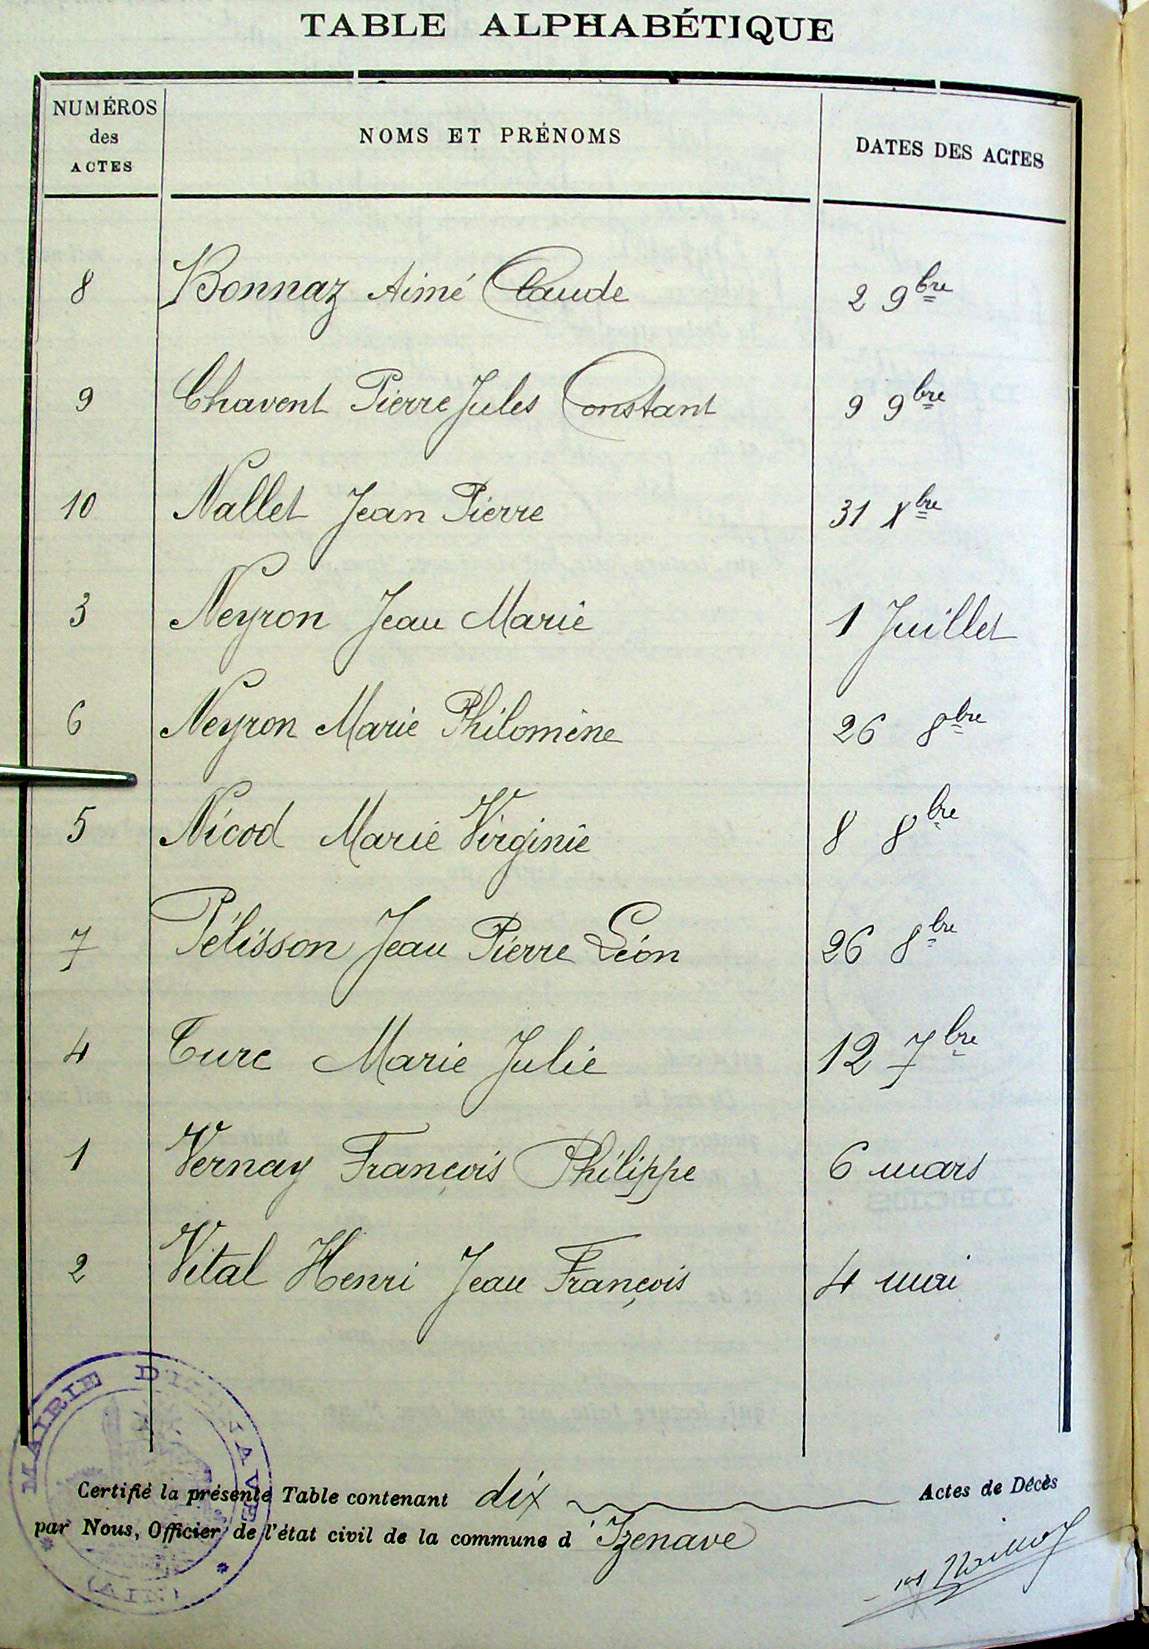 TABLE ALPHABÉTIQUE
NUMÉROS des ACTES NOMS ET PRÉNOMS DATES DES ACTES
8 Bonnaz Aimé Claude 2 9bre
9 Chavent Pierre Jules Constant 9 9bre
10 Nallet Jean Pierre 31 Xbre
3 Neyron Jean Marie 1 Juillet
6 Neyron Marie Philomène 26 8bre
5 Nicod Marie Virginie 8 8bre
7 Pélisson Jean Pierre Léon 26 8bre
4 Turc Marie Julie 12 7bre
1 Vernay François Philippe 6 mars
2 Vital Henri Jean François 4 mai
Certifié la présente Table contenant dix Actes de Décès
par Nous, Officier de l'état civil de la commune d'Izenave
MAIRIE D'IZENAVE
(AIN)